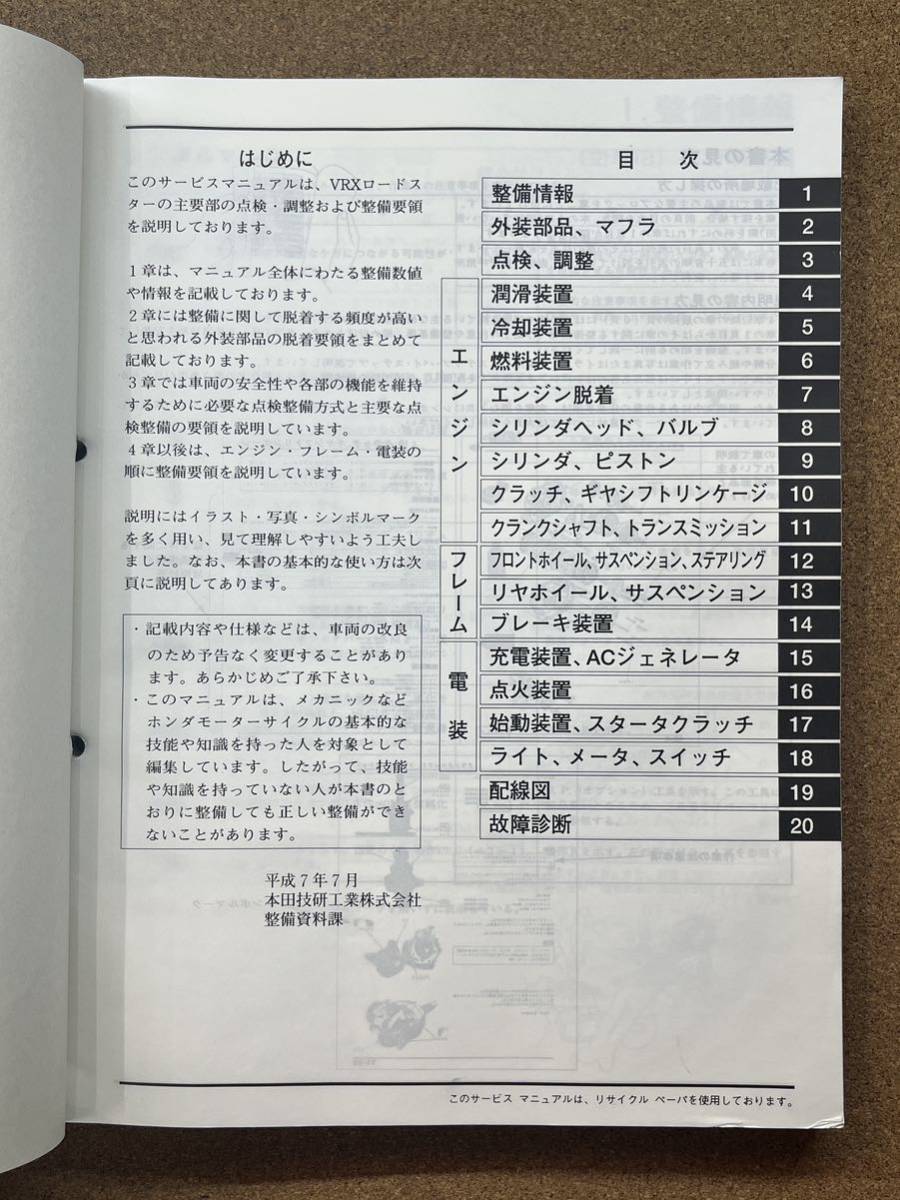 はじめに
このサービスマニュアルは、VRXロードス
ターの主要部の点検・調整および整備要領
を説明しております。
1章は、マニュアル全体にわたる整備数値
や情報を記載しております。
2章には整備に関して脱着する頻度が高い
と思われる外装部品の脱着要領をまとめて
記載しております。
3章では車両の安全性や各部の機能を維持
するために必要な点検整備方式と主要な点
検整備の要領を説明しています。
4章以後は、エンジン・フレーム・電装の
順に整備要領を説明しています。
説明にはイラスト・写真・シンボルマーク
を多く用い、見て理解しやすいよう工夫し
ました。なお、本書の基本的な使い方は次
頁に説明してあります。
・記載内容や仕様などは、車両の改良
のため予告なく変更することがあり
ます。あらかじめご了承下さい。
・このマニュアルは、メカニックなど
ホンダモーターサイクルの基本的な
技能や知識を持った人を対象として
編集しています。したがって、技能
や知識を持っていない人が本書のと
おりに整備しても正しい整備ができ
ないことがあります。
平成7年7月
本田技研工業株式会社
整備資料課
目 次
整備情報 1
外装部品、マフラ 2
点検、調整 3
エンジン
潤滑装置 4
冷却装置 5
燃料装置 6
エンジン脱着 7
シリンダヘッド、バルブ 8
シリンダ、ピストン 9
クラッチ、ギヤシフトリンケージ 10
クランクシャフト、トランスミッション 11
フレーム
フロントホイール、サスペンション、ステアリング 12
リヤホイール、サスペンション 13
ブレーキ装置 14
電装
充電装置、ACジェネレータ 15
点火装置 16
始動装置、スタータクラッチ 17
ライト、メータ、スイッチ 18
配線図 19
故障診断 20
このサービス マニュアルは、リサイクル ペーパを使用しております。